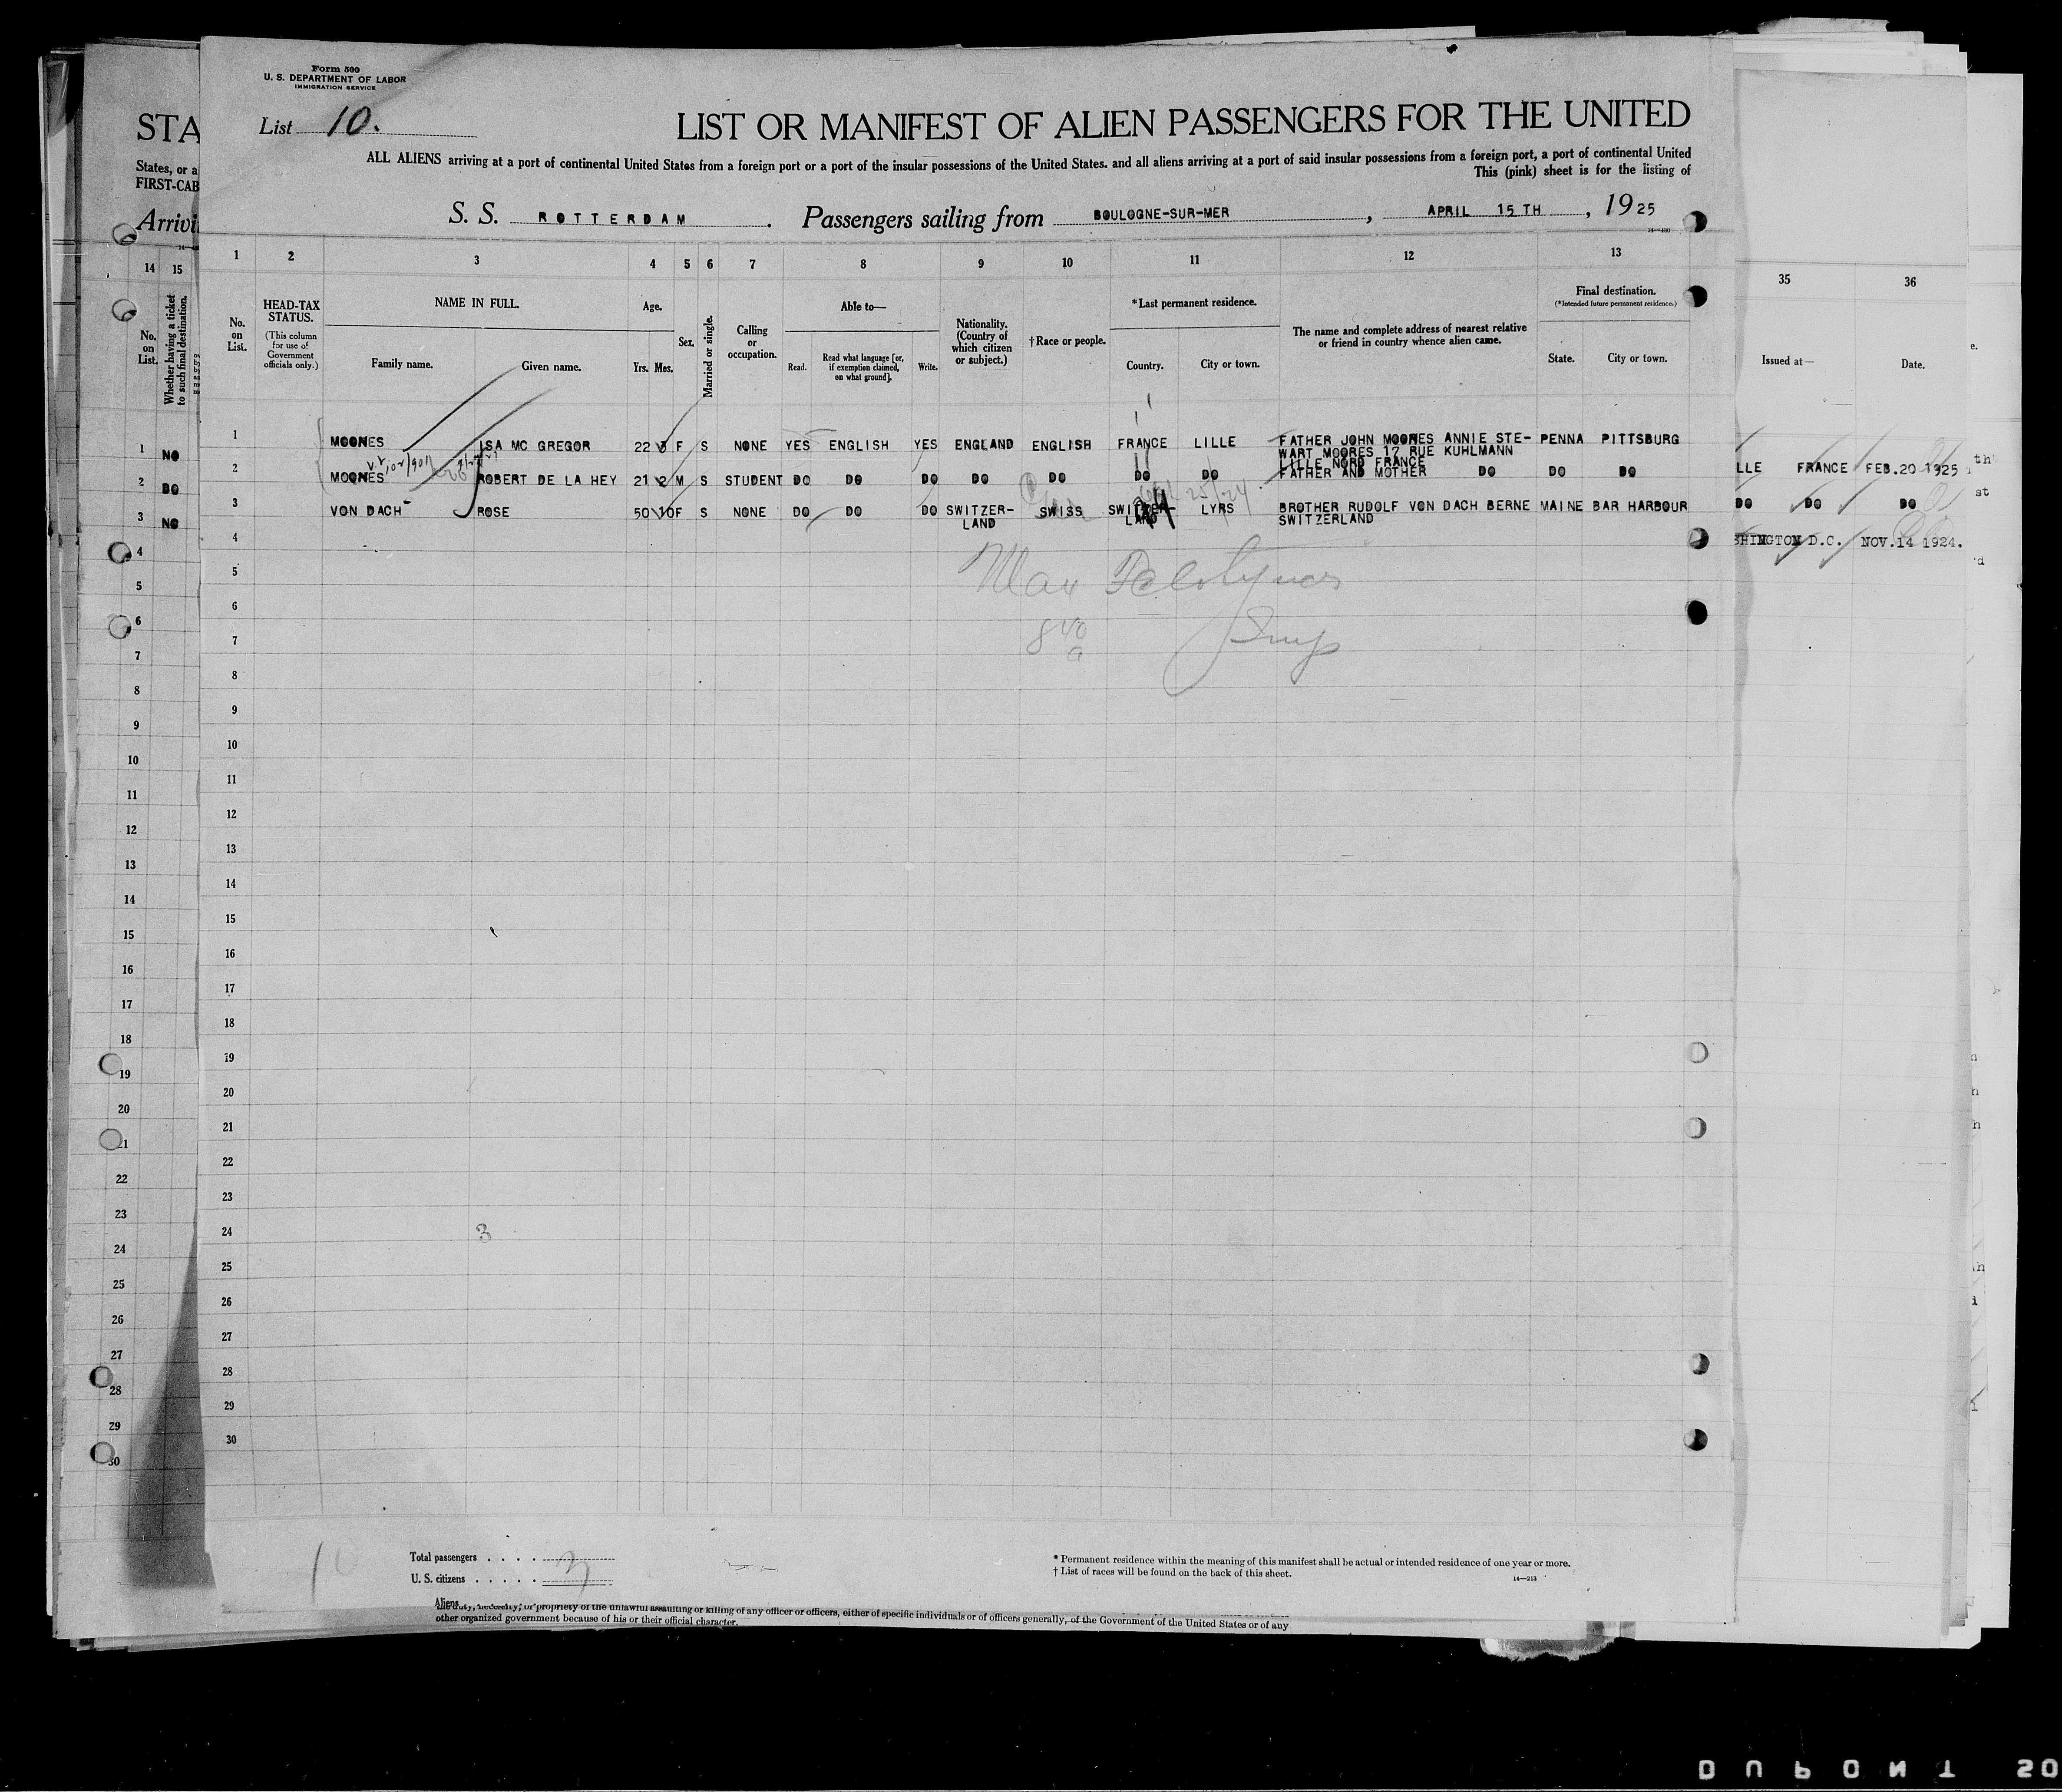 Form 500
U. S. DEPARTMENT OF LABOR
IMMIGRATION SERVICE
List 10.
LIST OR MANIFEST OF ALIEN PASSENGERS FOR THE UNITED
ALL ALIENS arriving at a port of continental United States from a foreign port or a port of the insular possessions of the United States, and all aliens arriving at a port of said insular possessions from a foreign port, a port of continental United
This (pink) sheet is for the listing of
S. S. ROTTERDAM. Passengers sailing from BOULOGNE-SUR-MER, APRIL 15TH, 1925
STA
States, or a
FIRST-CAB
Arrivi
14 15
No. on List.
Whether having a ticket to such final destination.
1 2 3 4 5 6 7 8 9 10 11 12 13
No. on List.
HEAD-TAX STATUS.
(This column for use of Government officials only.)
NAME IN FULL.
Family name. Given name.
Age.
Yrs. Mos.
Sex.
Married or single.
Calling or occupation.
Able to—
Read. Read what language [or, if exemption claimed, on what ground]. Write.
Nationality. (Country of which citizen or subject.)
†Race or people.
*Last permanent residence.
Country. City or town.
The name and complete address of nearest relative or friend in country whence alien came.
Final destination.
(*Intended future permanent residence.)
State. City or town.
35 36
Issued at— Date.
1 MOORES ISA MC GREGOR 22 3 F S NONE YES ENGLISH YES ENGLAND ENGLISH FRANCE LILLE FATHER JOHN MOORES ANNIE STE- PENNA PITTSBURG
WART MOORES 17 RUE KUHLMANN
LILLE NORD FRANCE
2 MOORES ROBERT DE LA HEY 21 2 M S STUDENT DO DO DO DO DO DO DO FATHER AND MOTHER DO DO DO
3 VON DACH ROSE 50 10 F S NONE DO DO DO SWITZER- SWISS SWITZER- LYRS BROTHER RUDOLF VON DACH BERNE MAINE BAR HARBOUR
LAND LAND SWITZERLAND
1 NO
2 DO
3 NO
LLE FRANCE FEB.20 1925
DO DO DO
SHINGTON D.C. NOV.14 1924.
4
5
6
7
8
9
10
11
12
13
14
15
16
17
18
19
20
21
22
23
24
25
26
27
28
29
30
3
10
Total passengers 3
U. S. citizens
Aliens
* Permanent residence within the meaning of this manifest shall be actual or intended residence of one year or more.
† List of races will be found on the back of this sheet.
14—213
the duty, necessity, or propriety of the unlawful assaulting or killing of any officer or officers, either of specific individuals or of officers generally, of the Government of the United States or of any
other organized government because of his or their official character.
DUPONT 20